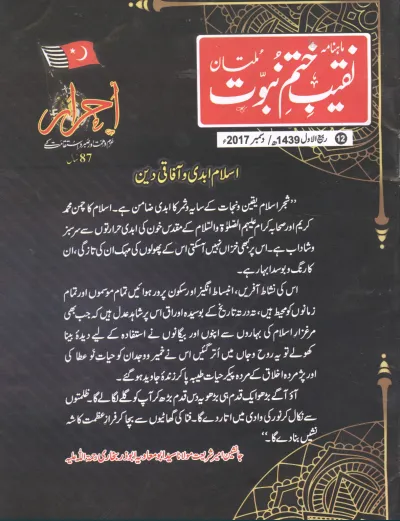 ماہنامہ
نقیب ختم نبوت ملتان
12 ربیع الاول 1439ھ / دسمبر 2017ء
احرار
87 سال
اسلام ابدی و آفاقی دین
"شجرِ اسلام یقین و نجات کے سایہ و ثمر کا ابدی ضامن ہے۔ اسلام کا چمن محمد
کریم اور صحابہ کرام علیہم الصلوٰۃ والسلام کے مقدس خون کی ابدی حرارتوں سے سرسبز
و شاداب ہے۔ اس پر کبھی خزاں نہیں آسکتی اس کے پھولوں کی مہک ان کی تازگی، ان
کا رنگ و بو سدا بہار ہے۔
اس کی نشاط آفریں، انبساط انگیز اور سکون پرور ہوائیں تمام موسموں اور تمام
زمانوں کو محیط ہیں، تہ در تہ تاریخ کے بوسیدہ اوراق اس پر شاہد عدل ہیں کہ جب بھی
مرغزارِ اسلام کی بہاروں سے اپنوں اور بیگانوں نے استفادہ کے لیے دیدۂ بینا
کھولے تو یہ روح و جاں میں اُتر گئیں اس نے ضمیر و وجدان کو حیاتِ نو عطا کی
اور پژمردہ اخلاق کے مردہ پیکر حیاتِ طیبہ پا کر زندۂ جاوید ہو گئے۔
آؤ آگے بڑھو ایک قدم ہی بڑھو یہ دس قدم بڑھ کر آپ کو گلے لگا لے گا۔ ظلمتوں
سے نکال کر نور کی وادی میں اتار دے گا۔ فنا کی گھاٹیوں سے بچا کر فرازِ عظمت کا شہ
نشیں بنا دے گا۔"
جانشین امیر شریعت مولانا سید ابو معاویہ ابوذر بخاری رحمۃ اللہ علیہ